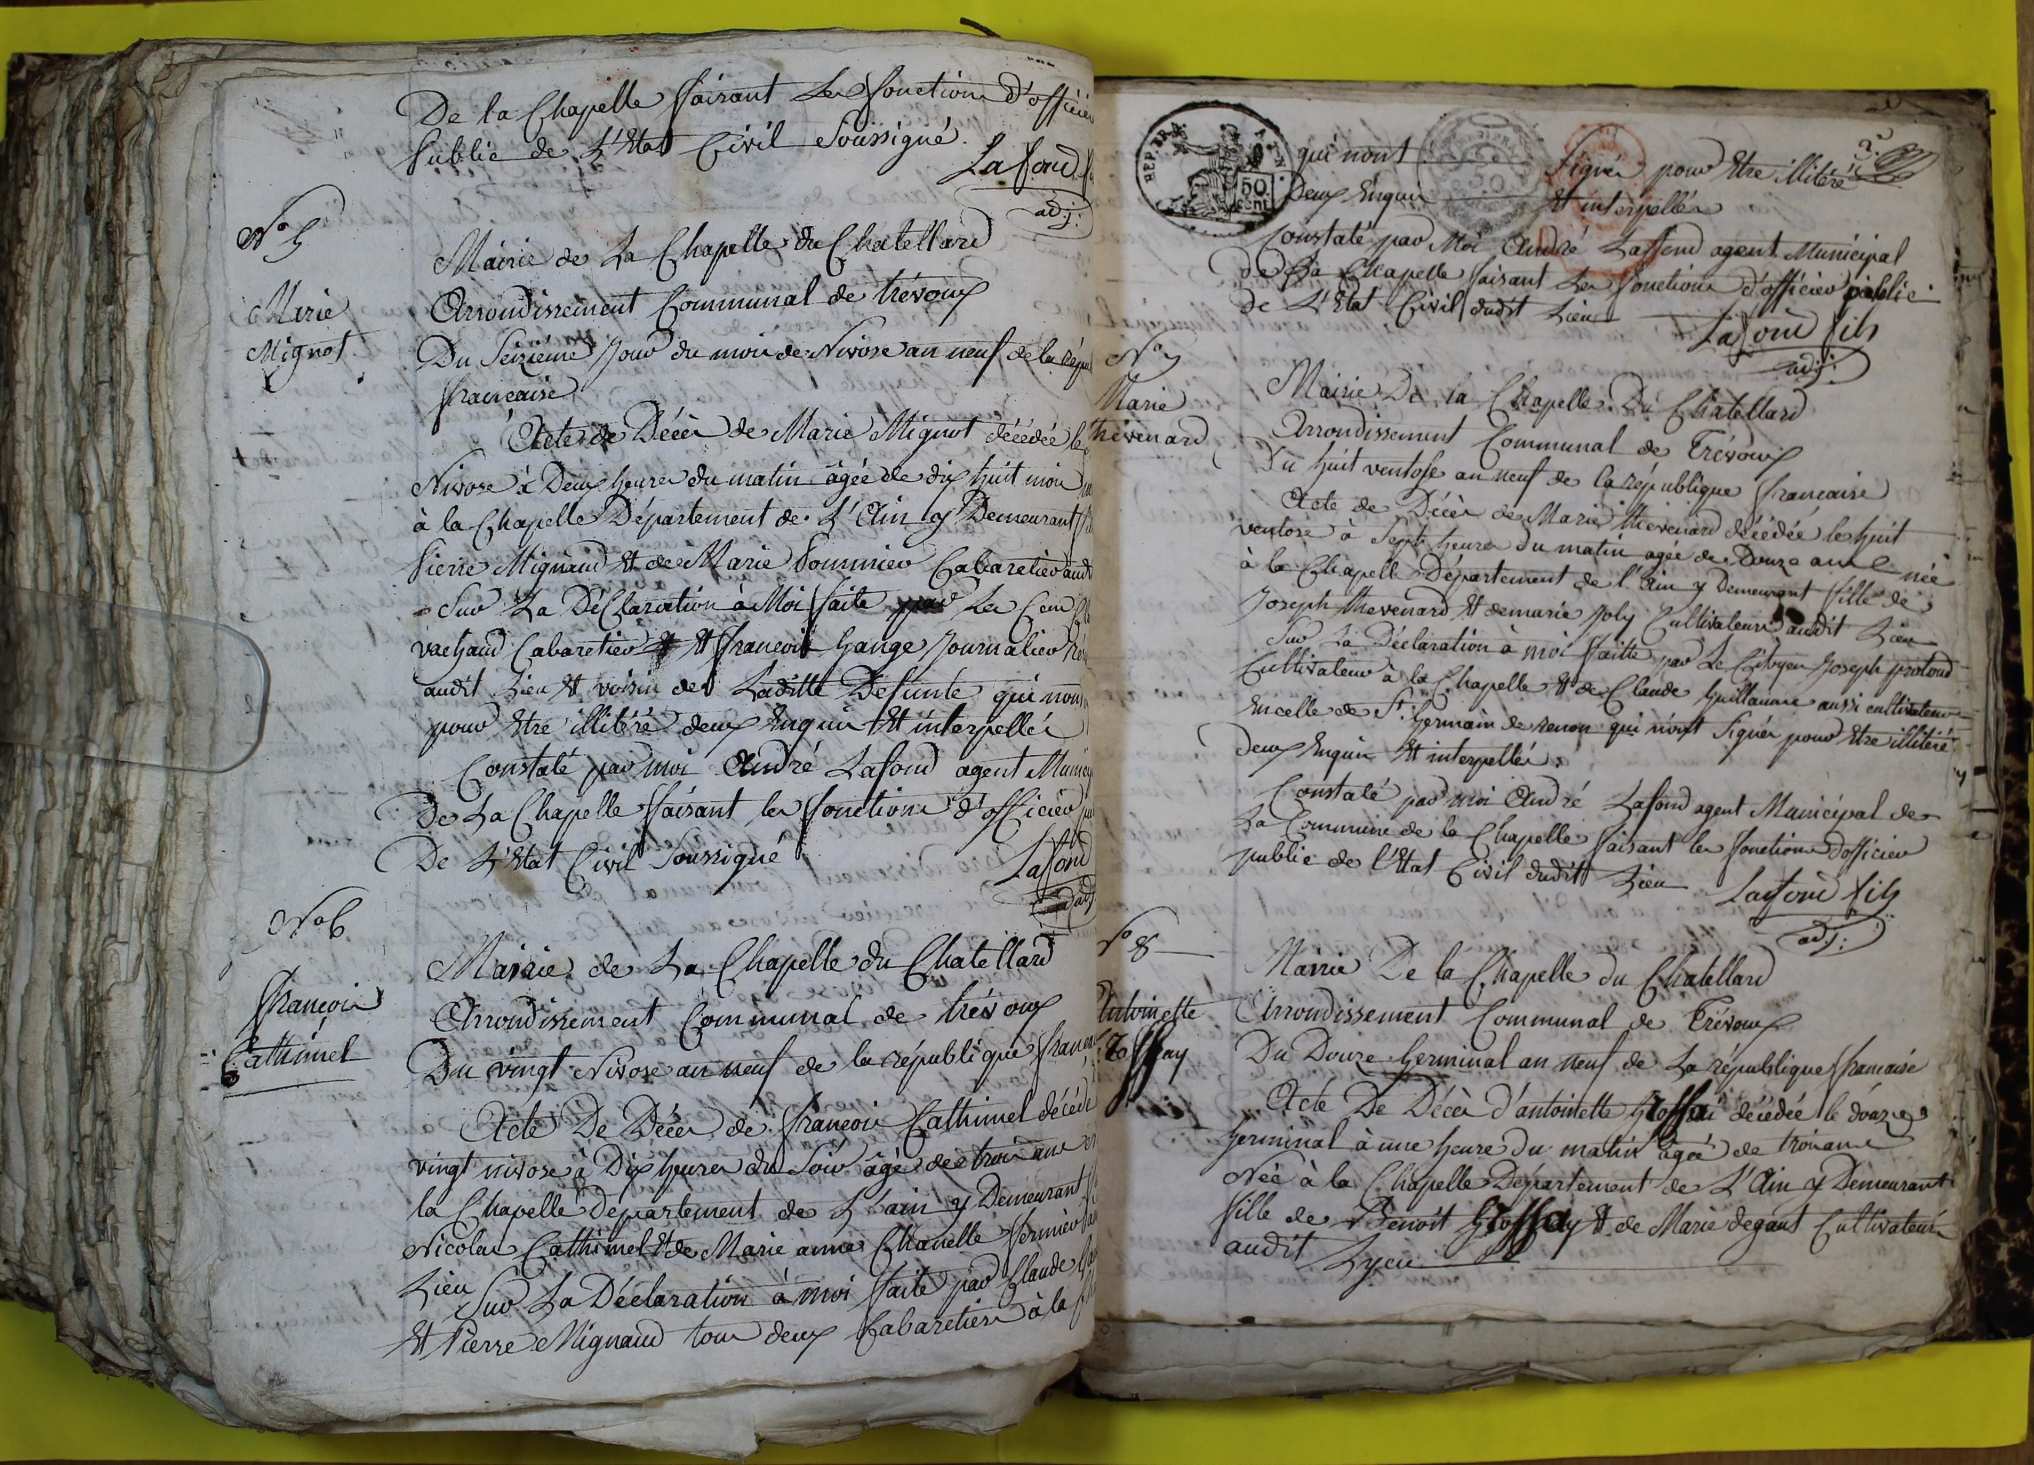 De la Chapelle faisant les fonctions d'officier
public de L'Etat Civil Soussigné.
Lafond
adj:
N° 5
Marie
Mignot
Mairie de La Chapelle du Chatellard
Arrondissement Communal de trévoux
Du Seizième Jour du mois de Nivose an neuf de la répu
francaise
Acte de Décès de Marie Mignot décédée le
Nivose à Deux heures du matin âgée de dix huit mois
à la Chapelle Département de L'Ain y Demeurant
Pierre Mignaud Et de Marie Pommier Cabaretier aud
Sur La Déclaration à Moi faite par Les Cens
vachaud Cabaretier Et françois hange Journalier
audit Lieu Et voisin de Laditte Défunte qui nont
pour Etre illitéré deux Enquis Et interpellés
Constaté par moi André Lafond agent Munici
De La Chapelle faisant les fonctions d'officier
De L'Etat Civil Soussigné
Lafond
adj
N° 6
françois
Cathimel
Mairie de La Chapelle du Chatellard
Arrondissement Communal de trévoux
Du vingt Nivose an neuf de la république francai
Acte De Décès de françois Cathimel décédé
vingt nivose à Dix heures du Soir âgé de trois ans
la Chapelle Département de L'ain y Demeurant
Nicolas Cathimel Et de Marie anne Chanelle fermier
Lieu
Sur La Déclaration à moi faite par Claude
Et Pierre Mignaud tous deux Cabaretiers à la
REP. FRA.
50
cent
2.
qui nont Signés pour Etre illitéré
Deux Enquis Et interpellés
Constaté par Moi André Laffond agent Municipal
de La Chapelle faisant Les fonctions d'officier public
de L'Etat Civil dudit Lieu
Lafond fils
adj:
N° 7
Marie
thévenard
Mairie De la Chapelle Du Chatellard
Arrondissement Communal de Trévoux
Du huit ventose an neuf de la république francaise
Acte de Décès de Marie thévenard décédée le huit
ventose à Sept heures du matin agée de Douze ans née
à la Chapelle Département de l'Ain y Demeurant fille de
Joseph thevenard Et de marie Joly Cultivateurs audit Lieu
Sur La Déclaration à moi faitte par Le Citoyen Joseph
Cultivateur à la Chapelle Et de Claude Guillaume aussi cultivateur
En celle de St. Germain de renon qui nont Signés pour Etre illitéré
Deux Enquis Et interpellés
Constaté par moi André Lafond agent Municipal de
La Commune de la Chapelle faisant les fonctions d'officier
public de l'Etat Civil dudit Lieu
Laffond fils
adj:
N° 8
Antoinette
Mairie De la Chapelle du Chatellard
Arrondissement Communal de Trévoux
Du Douze Germinal an neuf de La république francaise
Acte De Décès d'antoinette décédée le douze
Germinal à une heure du matin agée de trois ans
Née à la Chapelle Département de L'Ain y Demeurant
fille de Benoit Et de Marie degant Cultivateurs
audit Lyeu